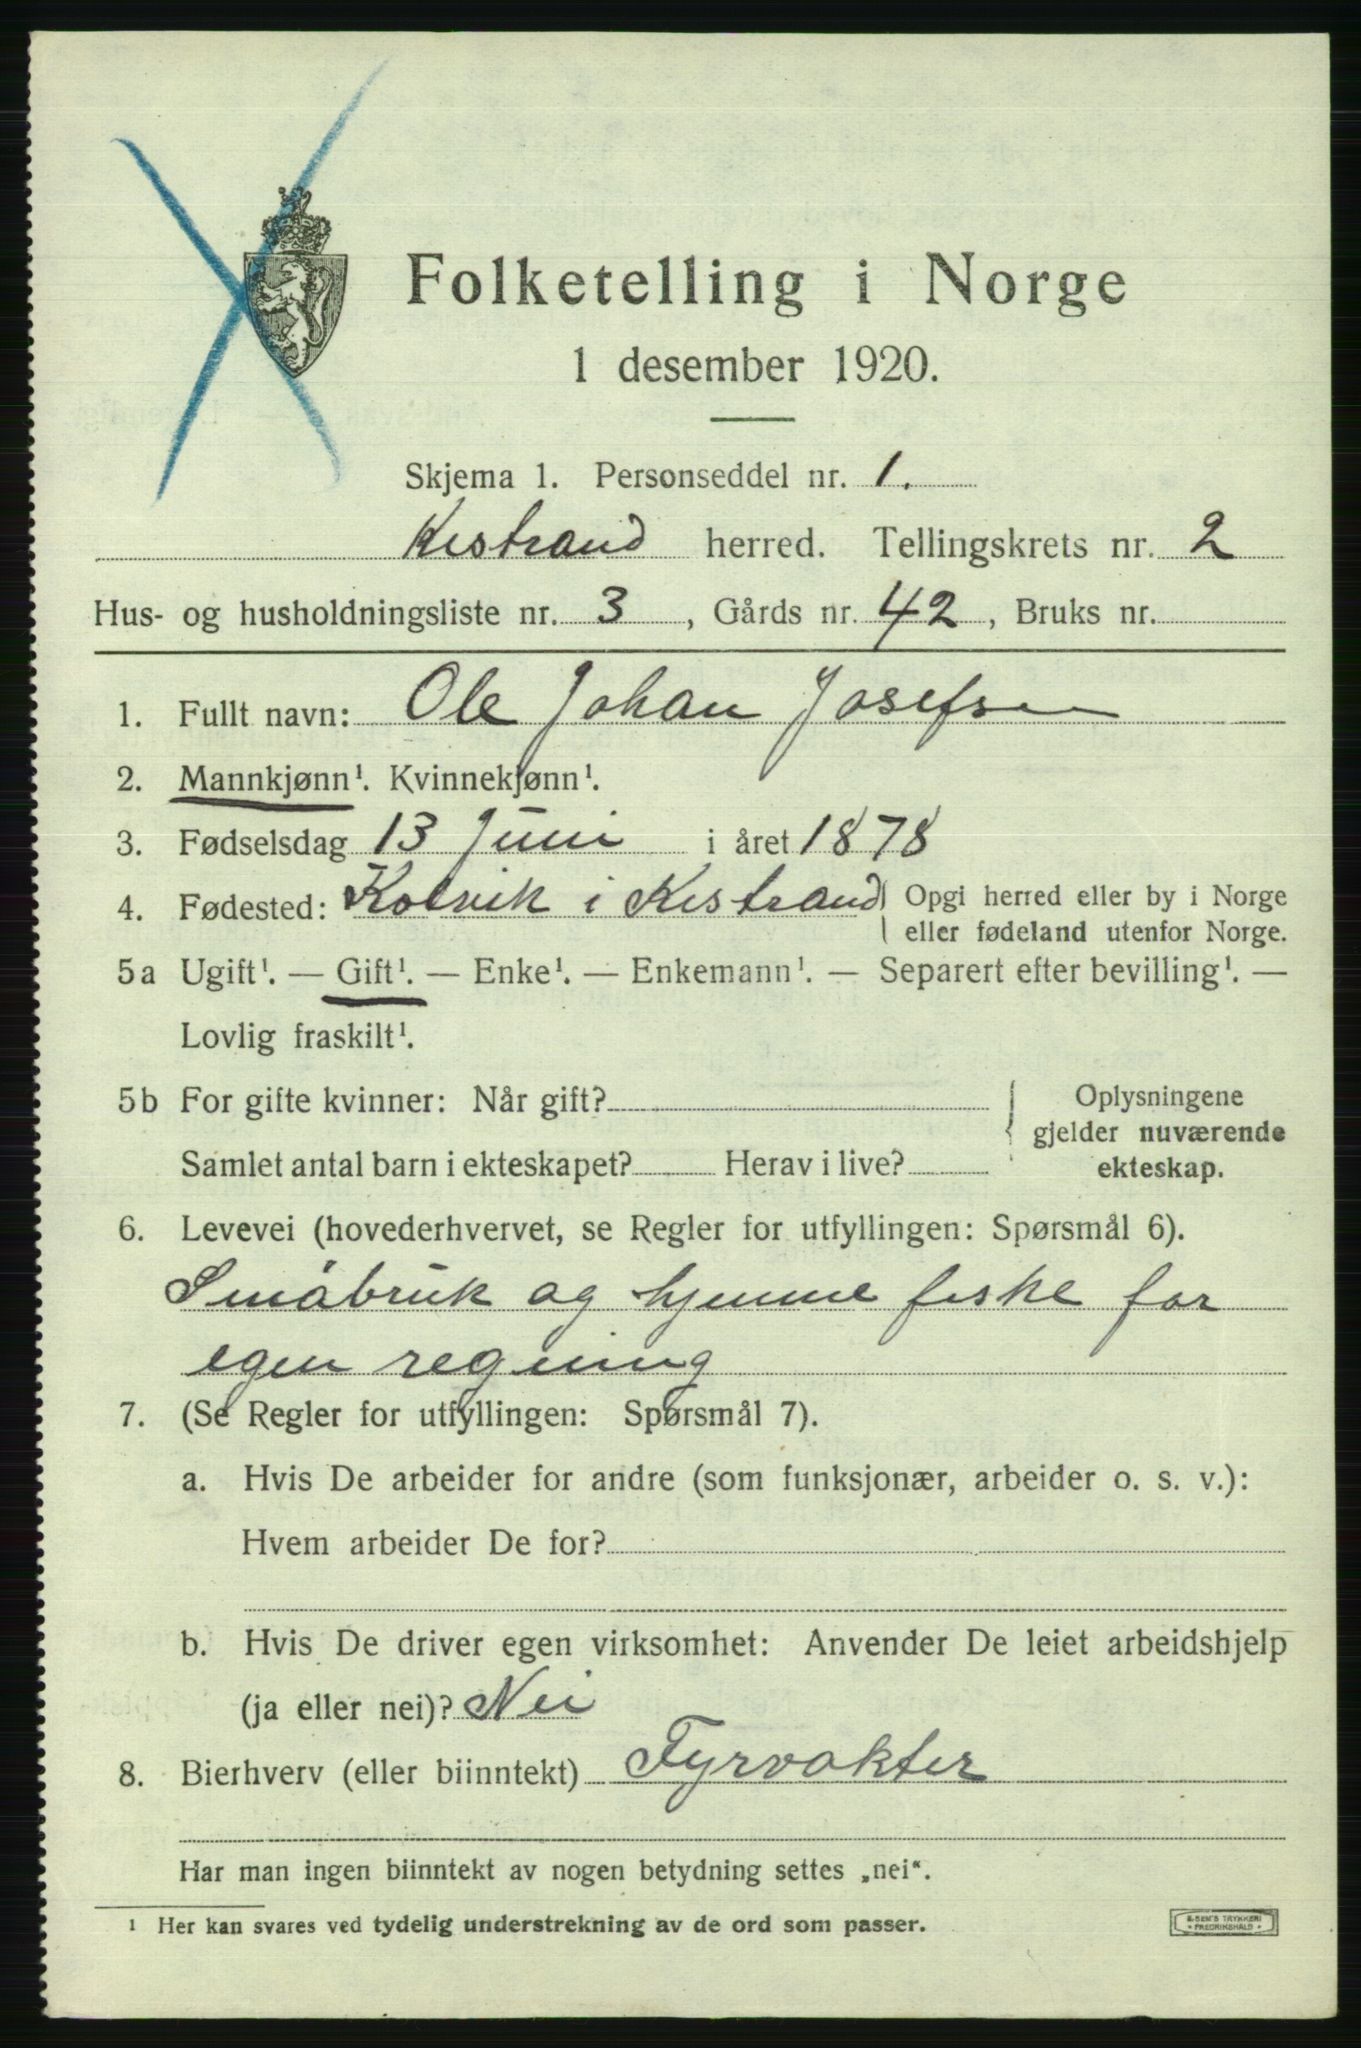 Folketelling i Norge
1 desember 1920.
Skjema 1. Personseddel nr. 1.
Kistrand herred. Tellingskrets nr. 2
Hus- og husholdningsliste nr. 3, Gårds nr. 42, Bruks nr.
1. Fullt navn: Ole Johan Josefsen
2. Mannkjønn¹. Kvinnekjønn¹.
3. Fødselsdag 13 Juni i året 1878
4. Fødested: Kolvik i Kistrand { Opgi herred eller by i Norge
eller fødeland utenfor Norge.
5a Ugift¹. — Gift¹. — Enke¹. — Enkemann¹. — Separert efter bevilling¹. —
Lovlig fraskilt¹.
5b For gifte kvinner: Når gift? { Oplysningene
gjelder nuværende
Samlet antal barn i ekteskapet? Herav i live? ekteskap.
6. Levevei (hovederhvervet, se Regler for utfyllingen: Spørsmål 6).
Småbruk og hjemme fiske for
egen regning
7. (Se Regler for utfyllingen: Spørsmål 7).
a. Hvis De arbeider for andre (som funksjonær, arbeider o. s. v.):
Hvem arbeider De for?
b. Hvis De driver egen virksomhet: Anvender De leiet arbeidshjelp
(ja eller nei)? Nei
8. Bierhverv (eller biinntekt) Fyrvokter
Har man ingen biinntekt av nogen betydning settes „nei“.
¹ Her kan svares ved tydelig understrekning av de ord som passer.
E. SEM'S TRYKKERI
FREDRIKSHALD